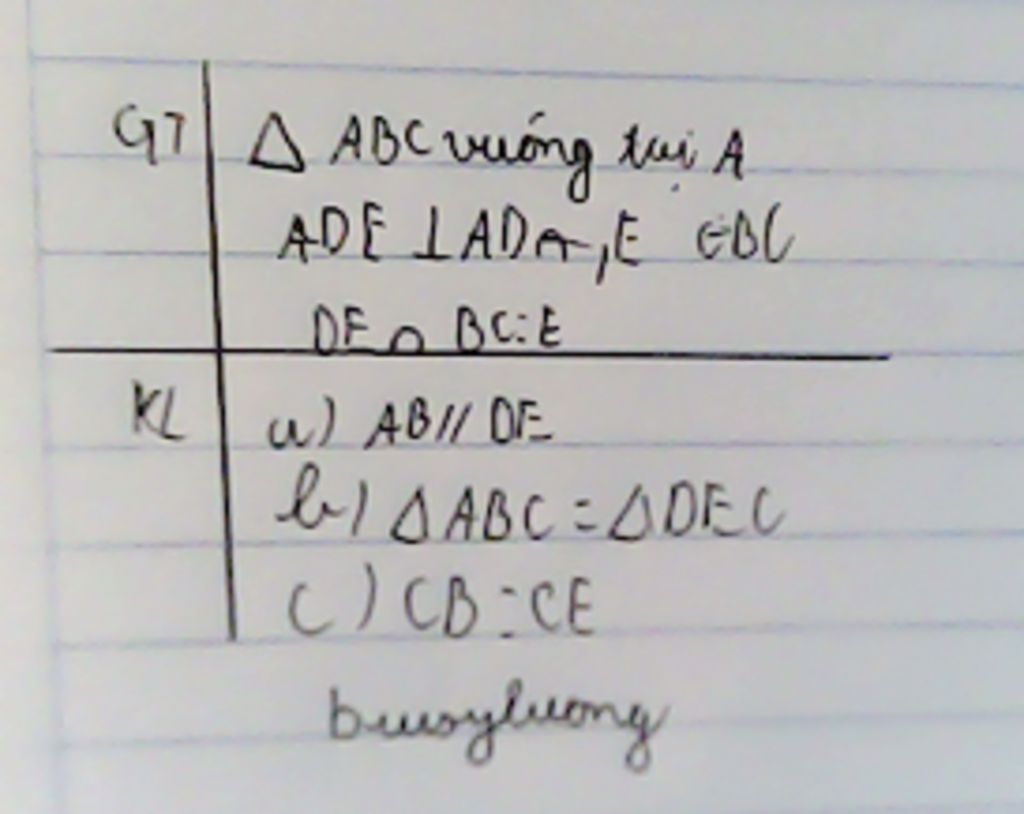 GT △ ABC vuóng tại A
ADE ⊥ AD, E ∈ BC
DE ∩ BC = E
KL a) AB // DE
b) △ ABC = △ DEC
c) CB = CE